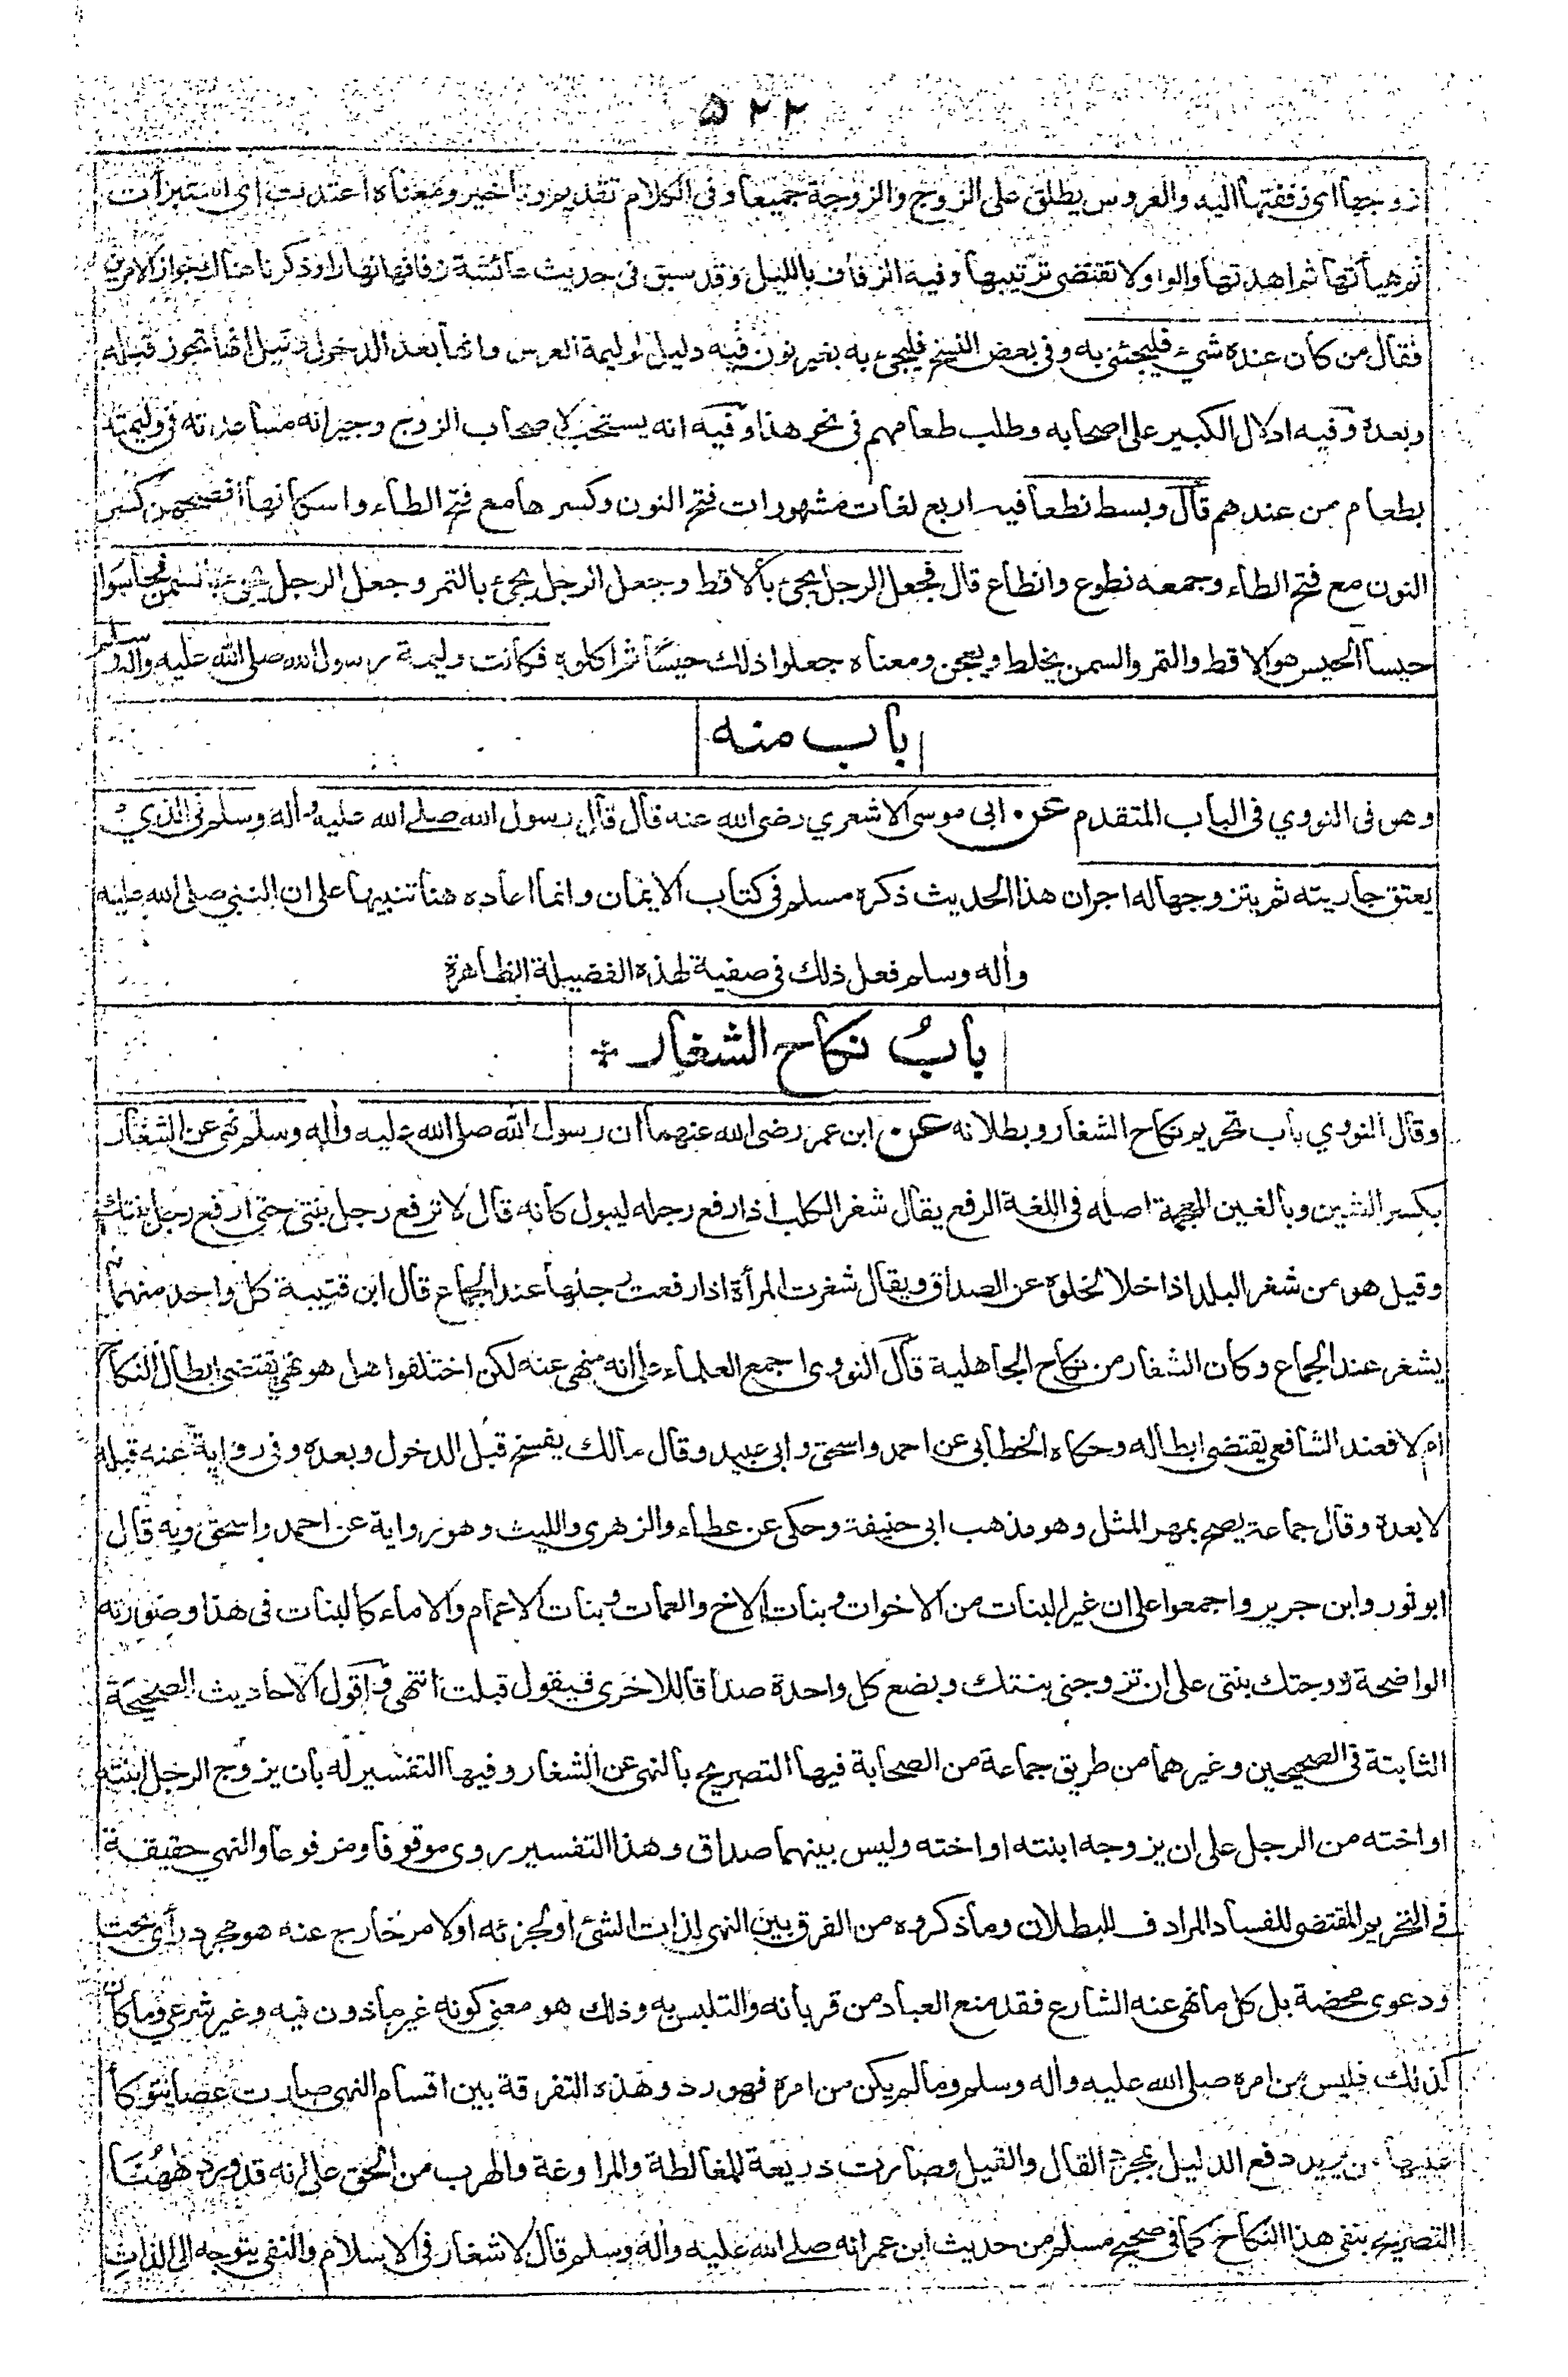 ۵۲۲
زوجها اى زففتها اليه والعروس يطلق على الزوج والزوجة جميعا وفى الكلام تقديم وتأخير ومعناه اعتدت اى استبرأت
ثم هيأتها ثم اهدتها والواو لا تقتضى ترتيبها وفيه الزفاف بالليل وقد سبق فى حديث عائشة زفافها نهارا وذكرنا هناك جواز الامرين
فقال من كان عنده شىء فليجئنى به وفى بعض النسخ فليجىء به بغير نون فيه دليل لوليمة العرس وانها بعد الدخول وقيل انها تجوز قبله
وبعده وفيه ادلال الكبير على اصحابه وطلب طعامهم فى نحو هذا وفيه انه يستحب لاصحاب الزوج وجيرانه مساعدته فى وليمته
بطعام من عندهم قال وبسط نطعا فيه اربع لغات مشهورات فتح النون وكسرها مع فتح الطاء واسكانها افصحهن كسر
النون مع فتح الطاء وجمعه نطوع وانطاع قال فجعل الرجل يجىء بالاقط وجعل الرجل يجىء بالتمر وجعل الرجل يجىء بالسمن فحاسوا
حيسا الحيس هو الاقط والتمر والسمن يخلط ويعجن ومعناه جعلوا ذلك حيسا ثم اكلوه فكانت وليمة رسول الله صلى الله عليه واله وسلم
باب منه
وهو فى النووي فى الباب المتقدم عن ابى موسى الاشعري رضى الله عنه قال قال رسول الله صلے الله عليه وأله وسلم فى الذي
يعتق جاريته ثم يتزوجها له اجران هذا الحديث ذكره مسلم فى كتاب الايمان وانما اعاده هنا تنبيها على ان النبي صلى الله عليه
وأله وسلم فعل ذلك فى صفية لهذه الفضيلة الظاهرة
بابُ نكاح الشغار
وقال النووي باب تحريم نكاح الشغار وبطلانه عن ابن عمر رضى الله عنهما ان رسول الله صلى الله عليه وأله وسلم نهى عن الشغار
بكسر الشين وبالغين المعجمة اصله فى اللغة الرفع يقال شغر الكلب اذا رفع رجله ليبول كأنه قال لا ترفع رجل بنتى حتى ارفع رجل بنتك
وقيل هو من شغر البلد اذا خلا لخلوه عن الصداق ويقال شغرت المرأة اذا رفعت رجلها عند الجماع قال ابن قتيبة كل واحد منهما
يشغر عند الجماع وكان الشغار من نكاح الجاهلية قال النووى اجمع العلماء على انه منهى عنه لكن اختلفوا هل هو نهى يقتضى ابطال النكاح
ام لا فعند الشافعى يقتضى ابطاله وحكاه الخطابى عن احمد واسحق وابى عبيد وقال مالك يفسخ قبل الدخول وبعده وفى رواية عنه قبله
لا بعده وقال جماعة يصح بمهر المثل وهو مذهب ابى حنيفة وحكى عن عطاء والزهرى والليث وهو رواية عن احمد واسحق وبه قال
ابو ثور وابن جرير واجمعوا على ان غير البنات من الاخوات وبنات الاخ والعمات وبنات الاعمام والاماء كالبنات فى هذا وصورته
الواضحة زوجتك بنتى على ان تزوجنى بنتك وبضع كل واحدة صداقا للاخرى فيقول قبلت انتهى واقول الاحاديث الصحيحة
الثابتة فى الصحيحين وغيرهما من طريق جماعة من الصحابة فيها التصريح بالنهى عن الشغار وفيها التفسير له بان يزوج الرجل ابنته
او اخته من الرجل على ان يزوجه ابنته او اخته وليس بينهما صداق وهذا التفسير روى موقوفا ومرفوعا والنهي حقيقة
فے التحريم المقتضى للفساد المرادف للبطلان وما ذكروه من الفرق بين النهى لذات الشئ او لجزئه او لامر خارج عنه هو مجرد رأى بحت
ودعوى محضة بل كل ما نهى عنه الشارع فقد منع العباد من قربانه والتلبس به وذلك هو معنى كونه غير مأذون فيه وغير شرعى وما كان
كذلك فليس من امره صلى الله عليه وأله وسلم وما لم يكن من امره فهو رد وهذه التفرقة بين اقسام النهى صارت عصا يتوكأ
عليها من يريد دفع الدليل بمجرد القال والقيل وصارت ذريعة للمغالطة والمراوغة والهرب من الحق على انه قد ورد ههنا
التصريح بنفى هذا النكاح كما فى صحيح مسلم من حديث ابن عمر انه صلے الله عليه وأله وسلم قال لا شغار فى الاسلام والنفى يتوجه الى الذات